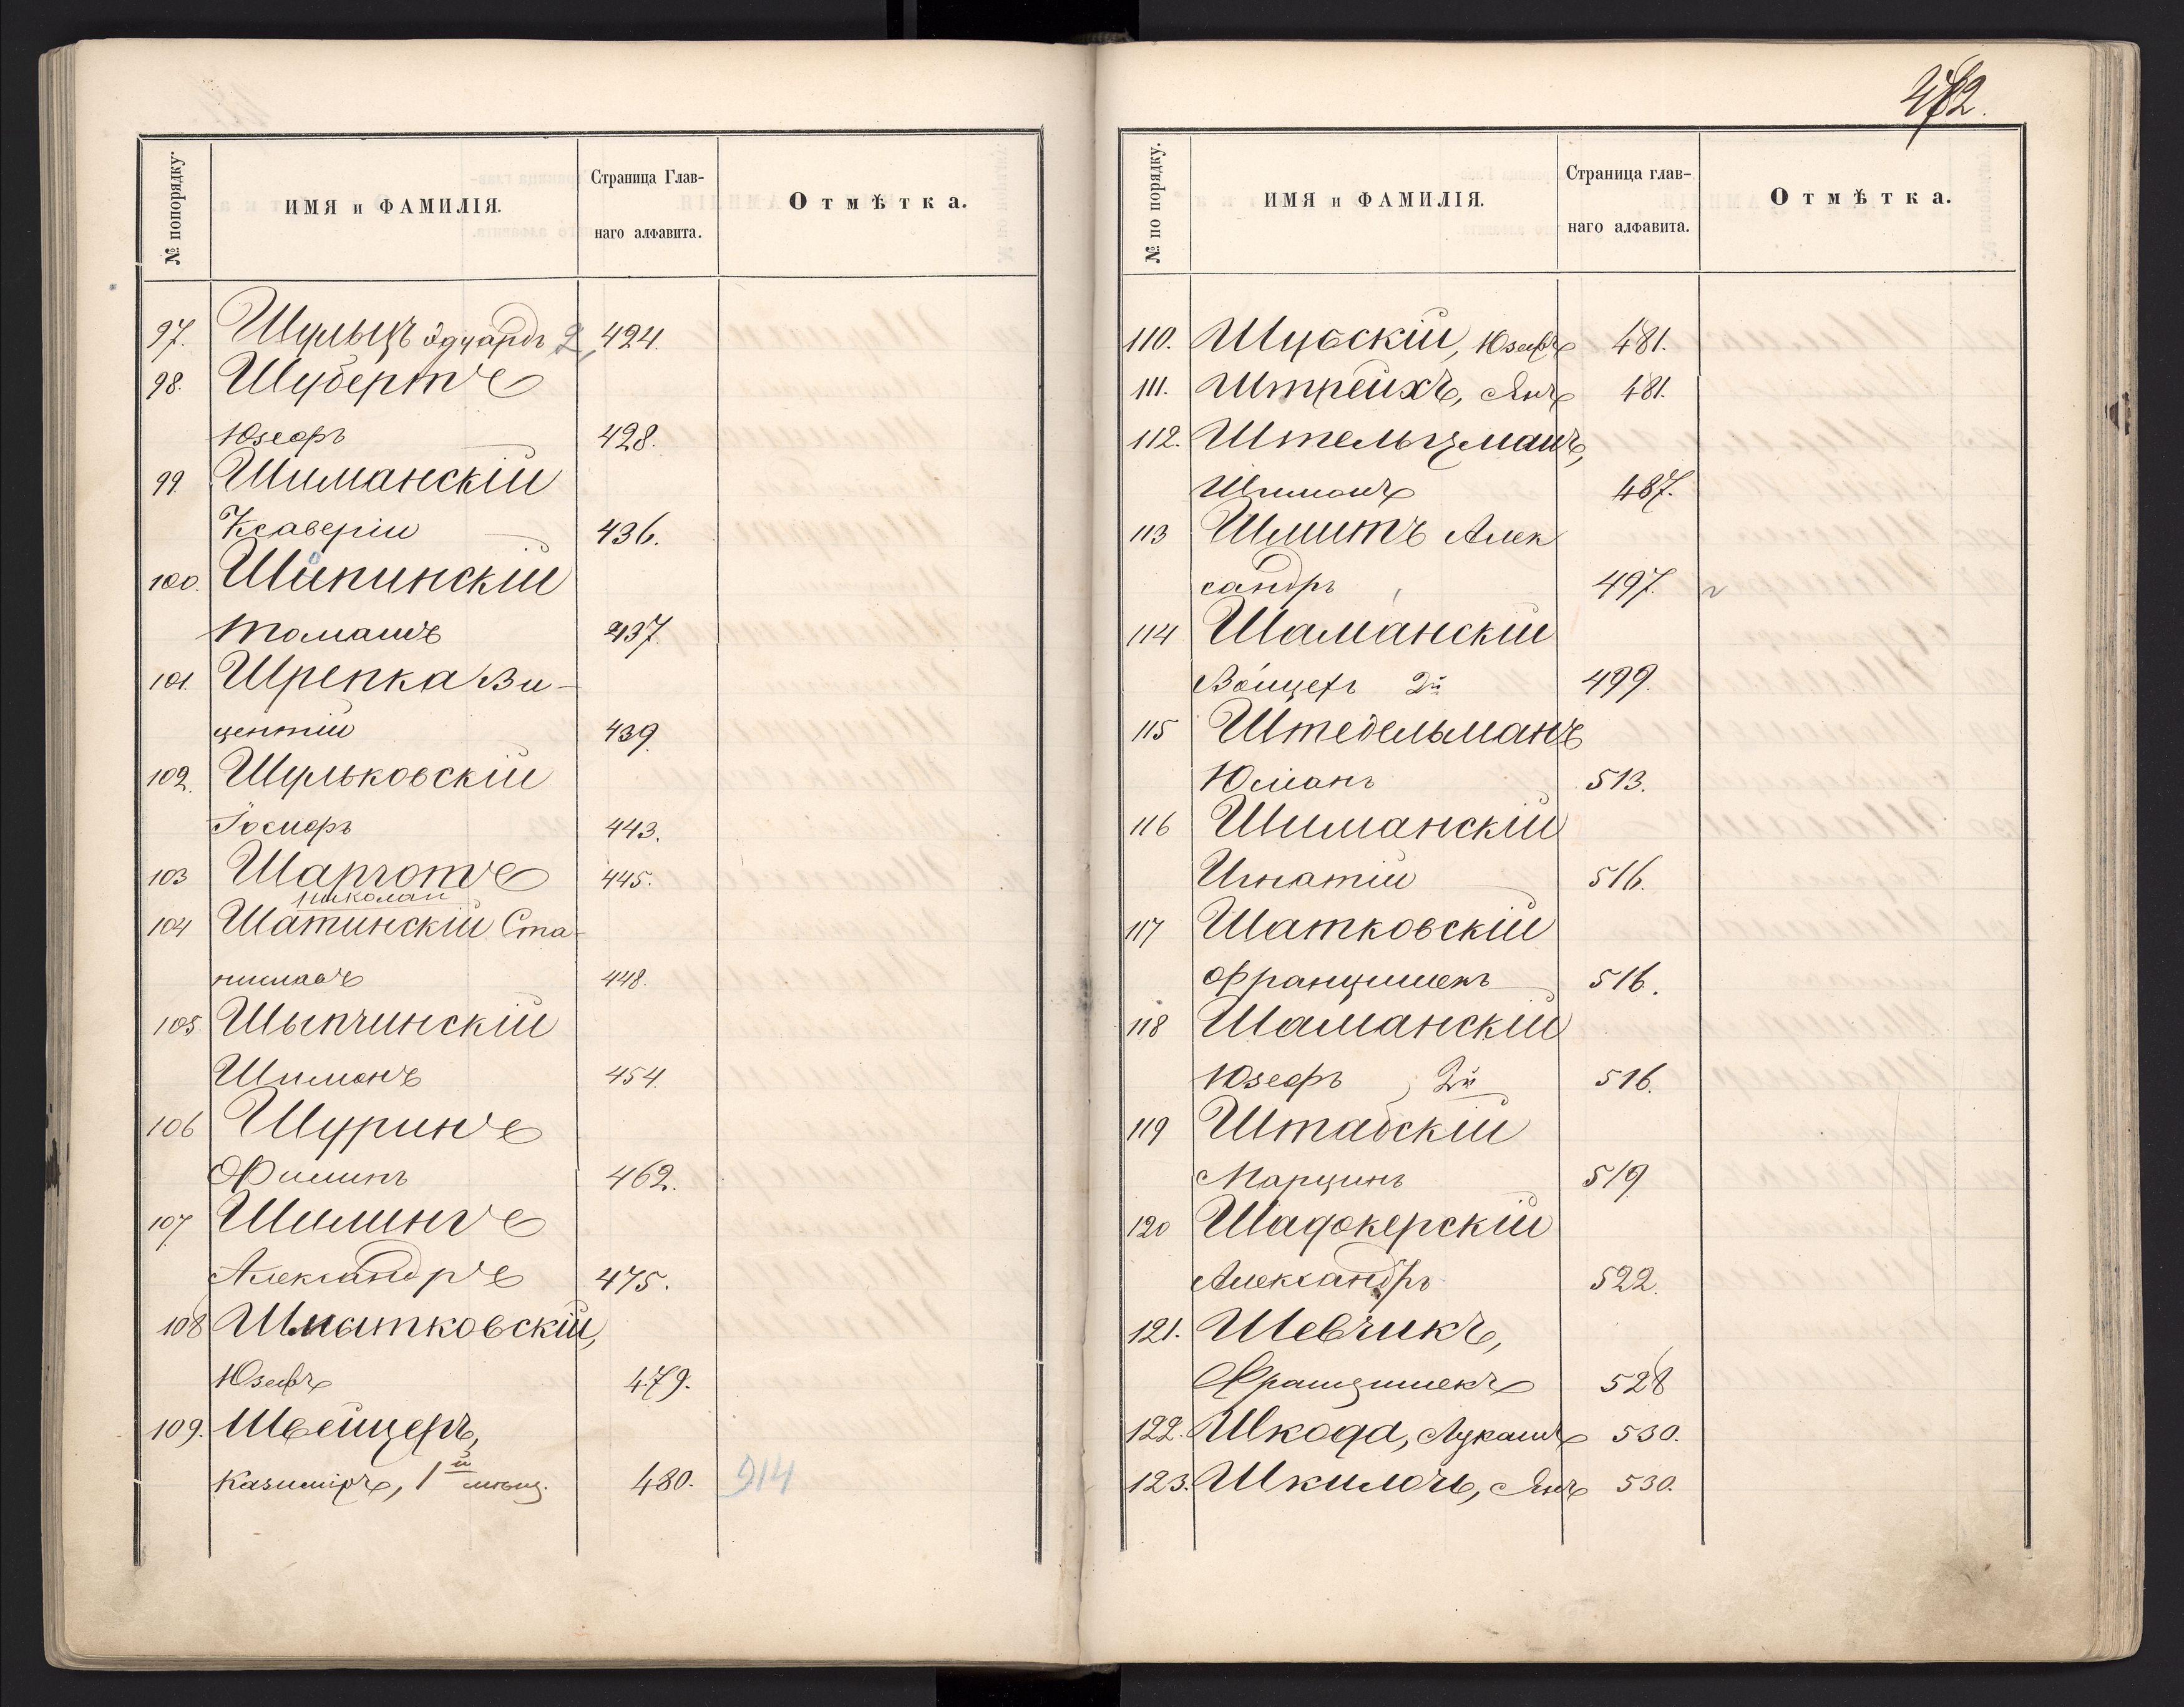 № попорядку.
ИМЯ и ФАМИЛІЯ.
Страница Глав-
наго алфавита.
Отмѣтка.
97. Шульцъ Эдуардъ 2, 424.
98. Шубертъ
Юзефъ 428.
99. Шиманскій
Ксаверій 436.
100. Шипинскій
Томашъ 437.
101. Шрепка Ви-
центій 439.
102. Шульковскій
Іосифъ 443.
103 Шарготъ 445.
Николай
104 Шатинскій Ста-
ниславъ 448.
105. Шыпчинскій
Шимонъ 454.
106 Шуринъ
Филипъ 462.
107 Шилингъ
Александръ 475.
108 Шматковскій,
Юзефъ 479.
109. Швейцеръ,
Казиміръ, 1й 480. 914
482.
№ по порядку.
ИМЯ и ФАМИЛІЯ.
Страница глав-
наго алфавита.
Отмѣтка.
110. Шубскій, Юзефъ 481.
111. Штрейхъ, Янъ 481.
112. Штельцманъ,
Шимонъ 487.
113 Шмитъ Алек
сандръ 497.
114 Шаманскій
Войцехъ 2й 499.
115 Штедельманъ
Юліанъ 513.
116 Шиманскій
Игнатій 516.
117 Шатковскій
Францишекъ 516.
118 Шаманскій
Юзефъ 2й 516.
119 Штабскій
Марцинъ 519
120 Шадокерскій
Александръ 522.
121. Шевчикъ,
Францишекъ 528
122. Шкода, Лукашъ 530.
123. Шкилочъ, Янъ 530.